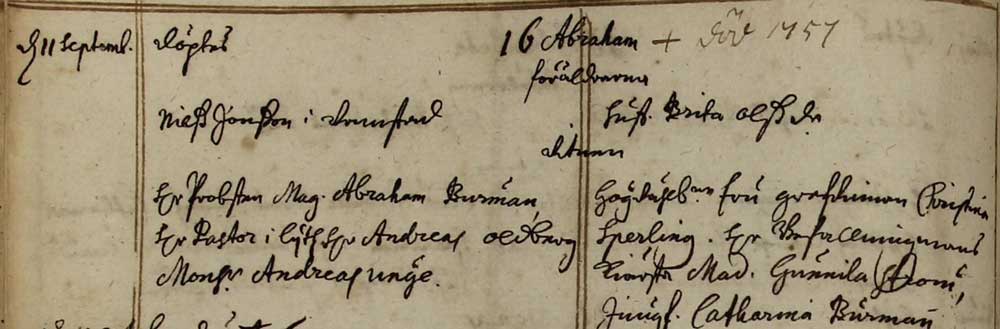 d 11 Septemb. döptes 16 Abraham + död 1757
föräldrarna
Nielß Jonßon i hust. Brita Olß dr
vitnen
Hr Probsten Mag. Abraham Burman, Högwälb. fru grefvinnan Christina
Hr Pastor i Andreas Oldberg Sperling. Hr Befallningsmans
Monsr Andreas unge. kiärsta Mad. Gunnila Strom,
Jungf. Catharina Burman